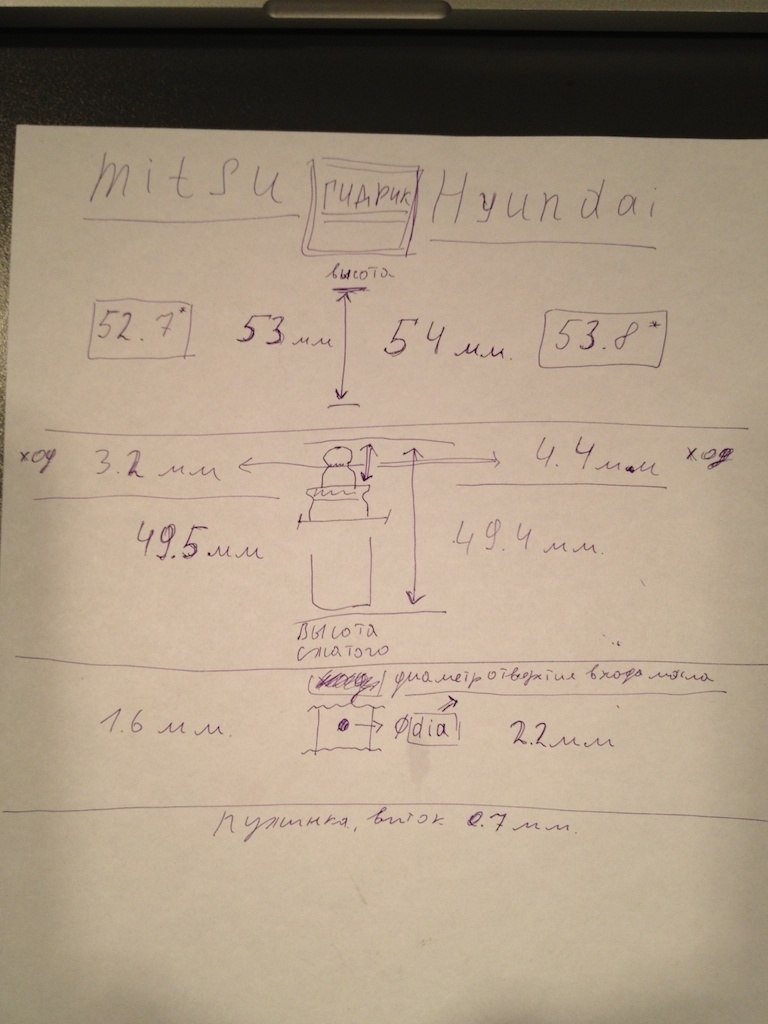 mitsu ГИДРИК Hyundai
высота
52.7* 53 мм 54 мм. 53.8*
ход 3.2 мм 4.4 мм ход
49.5 мм 49.4 мм.
Высота
сжатого
диаметр отверстия входа масла
1.6 мм. Ø dia 2.2 мм
пужинка, виток 0.7 мм.